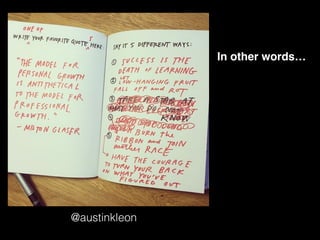 ONE OF
WRITE YOUR FAVORITE QUOTES HERE
"THE MODEL FOR
PERSONAL GROWTH
IS ANTITHETICAL
TO THE MODEL FOR
PROFESSIONAL
GROWTH."
- MILTON GLASER
SAY IT 5 DIFFERENT WAYS:
① SUCCESS IS THE
DEATH OF LEARNING
② LOW-HANGING FRUIT
FALL OFF AND ROT
③
KNOW
④
BURN THE
RIBBON and JOIN
another RACE
HAVE THE COURAGE
TO TURN YOUR BACK
ON WHAT YOU'VE
FIGURED OUT
In other words…
@austinkleon